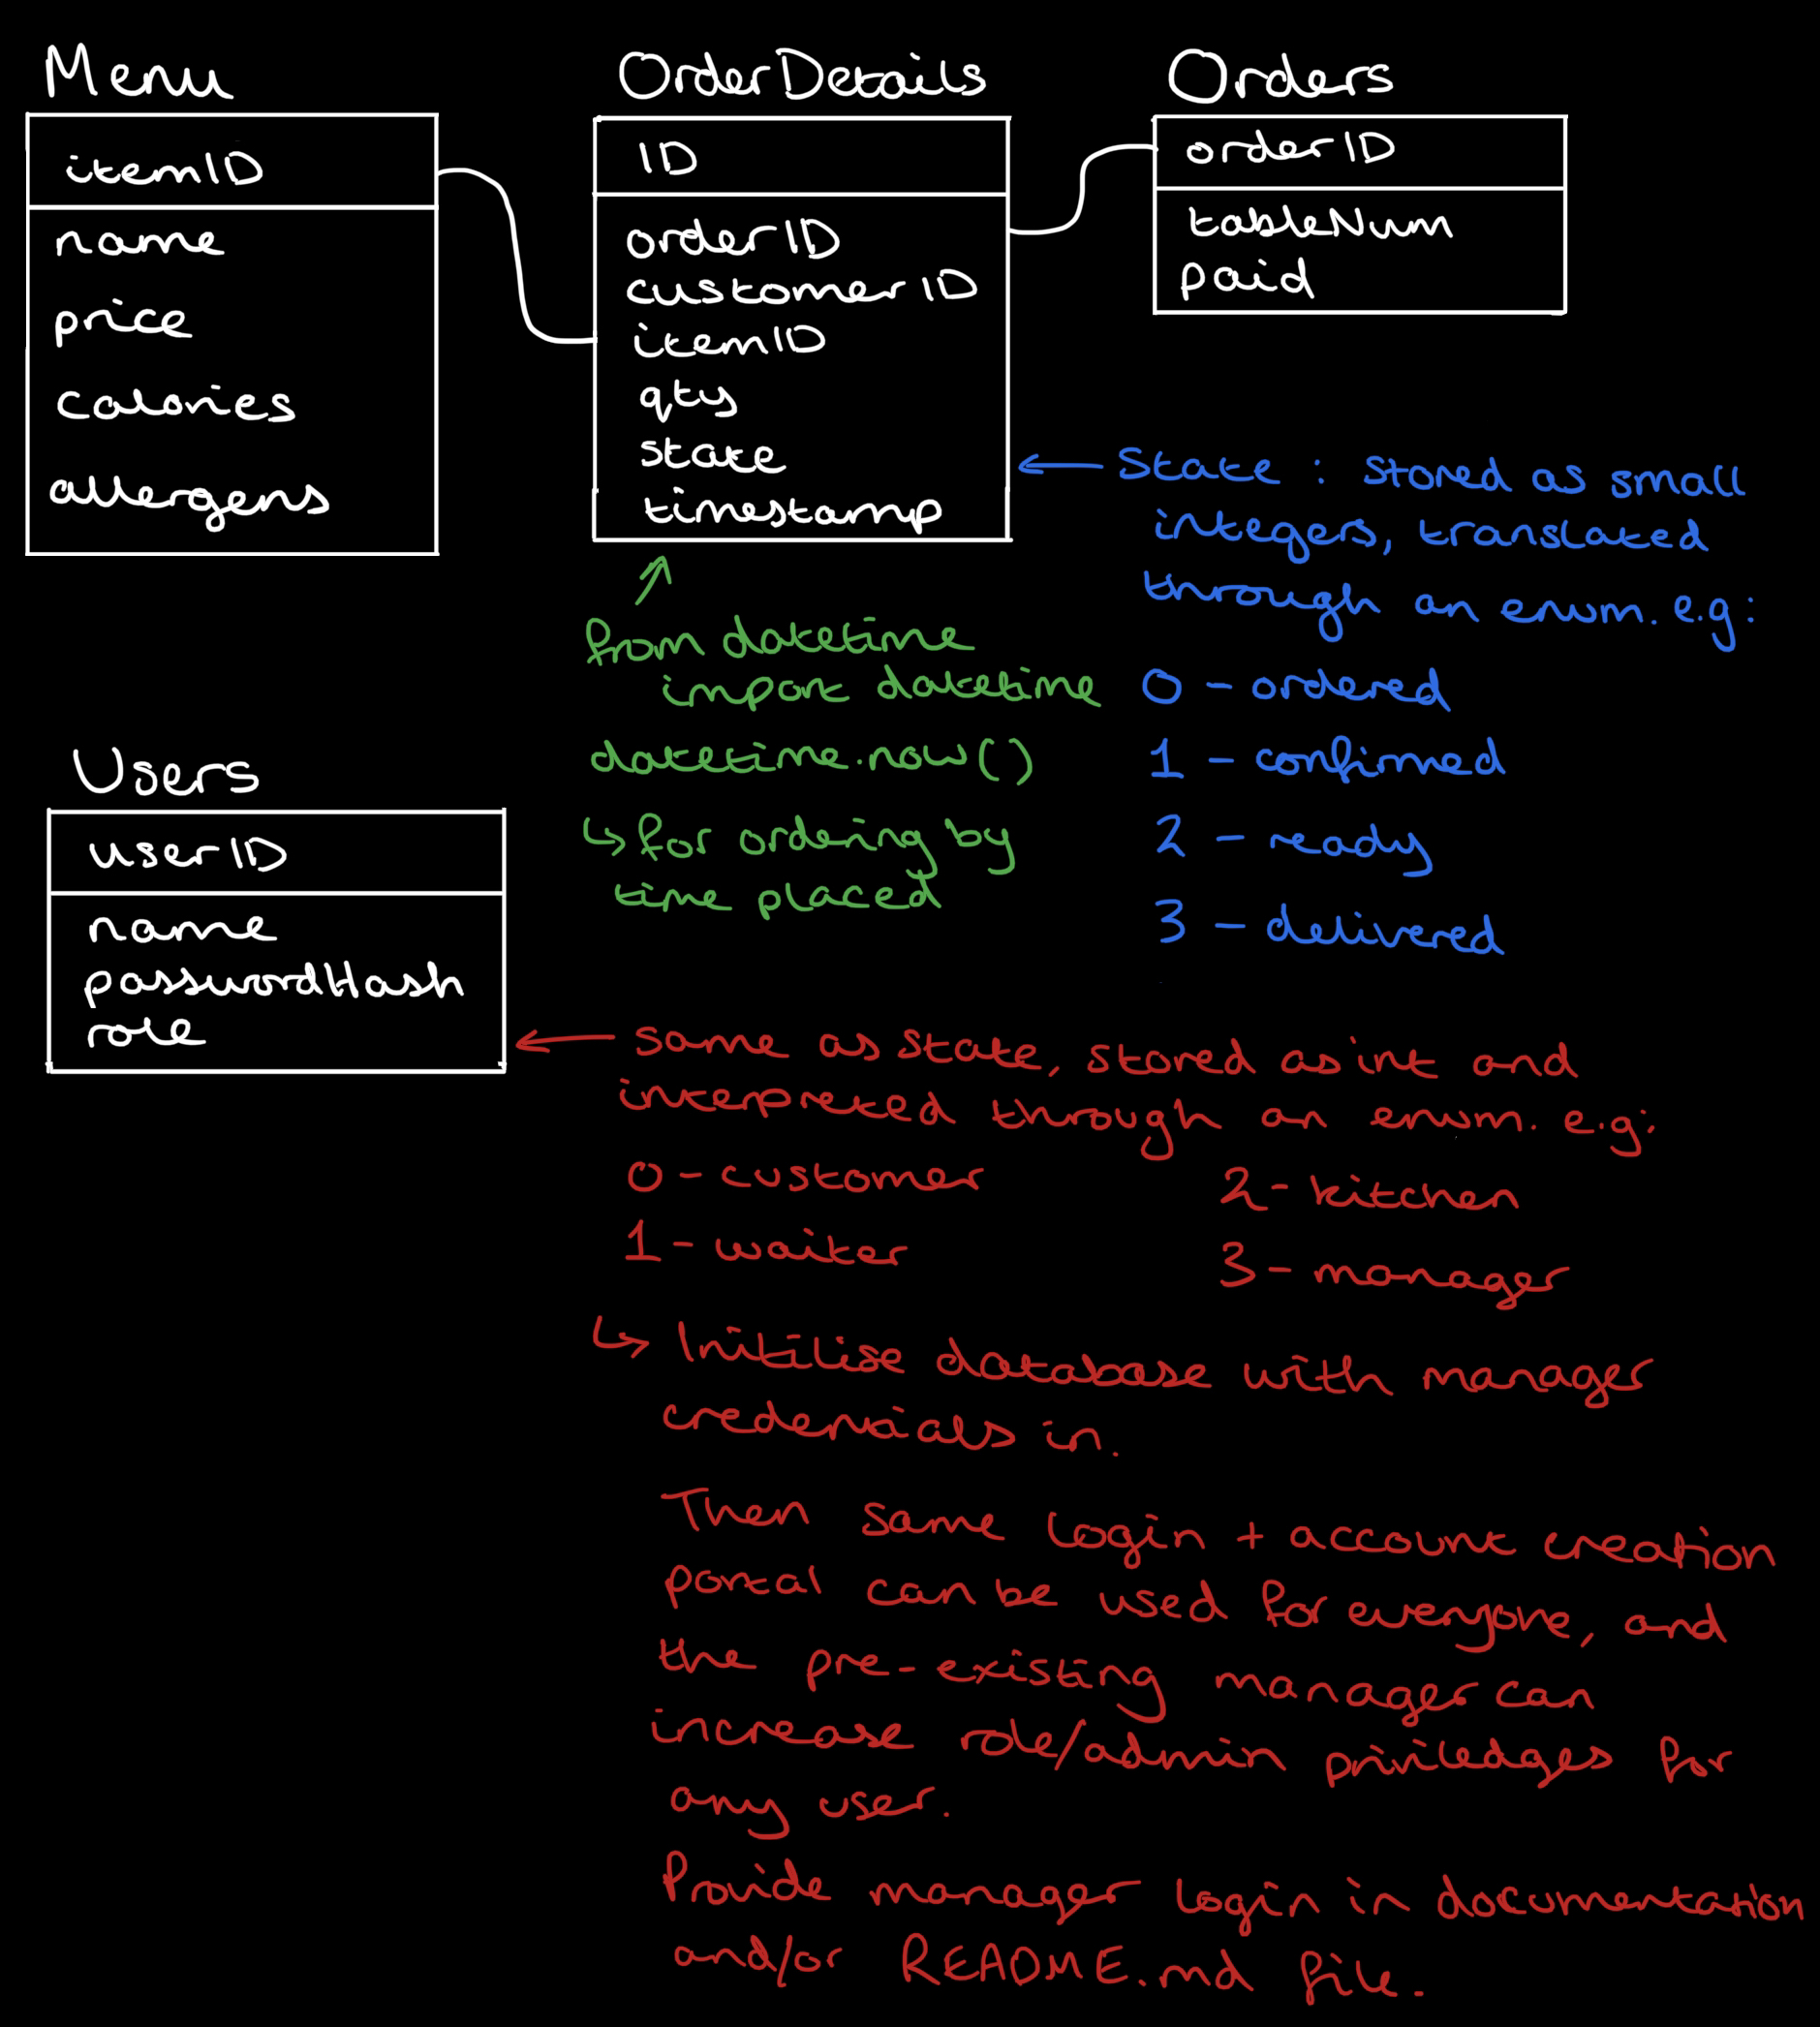 Menu
itemID
name
price
calories
allergens
OrderDetails
ID
orderID
customerID
itemID
qty
state
timestamp
Orders
orderID
tableNum
paid
State : stored as small
integers, translated
through an enum. e.g:
0 - ordered
1 - confirmed
2 - ready
3 - delivered
from datetime
import datetime
datetime.now()
↳ for ordering by
time placed
Users
userID
name
passwordHash
role
same as state, stored as int and
interpreted through an enum. e.g:
0 - customer
1 - waiter
2 - kitchen
3 - manager
↳ Initilise database with manager
credencials in.
Then same login + account creation
portal can be used for everyone, and
the pre-existing manager can
increase role/admin priviledges for
any user.
Provide manager login in documentation
and/or README.md file.